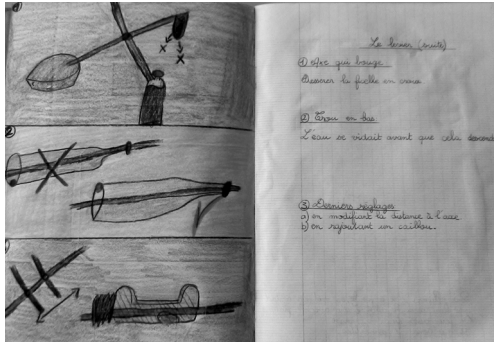 Le levier (suite)
① Axe qui bouge
Resserrer la ficelle en croix
② Trou en bas
L'eau se vidait avant que cela descende
③ Derniers réglages
a) en modifiant la distance à l'axe
b) en rajoutant un caillou.
②
x
x